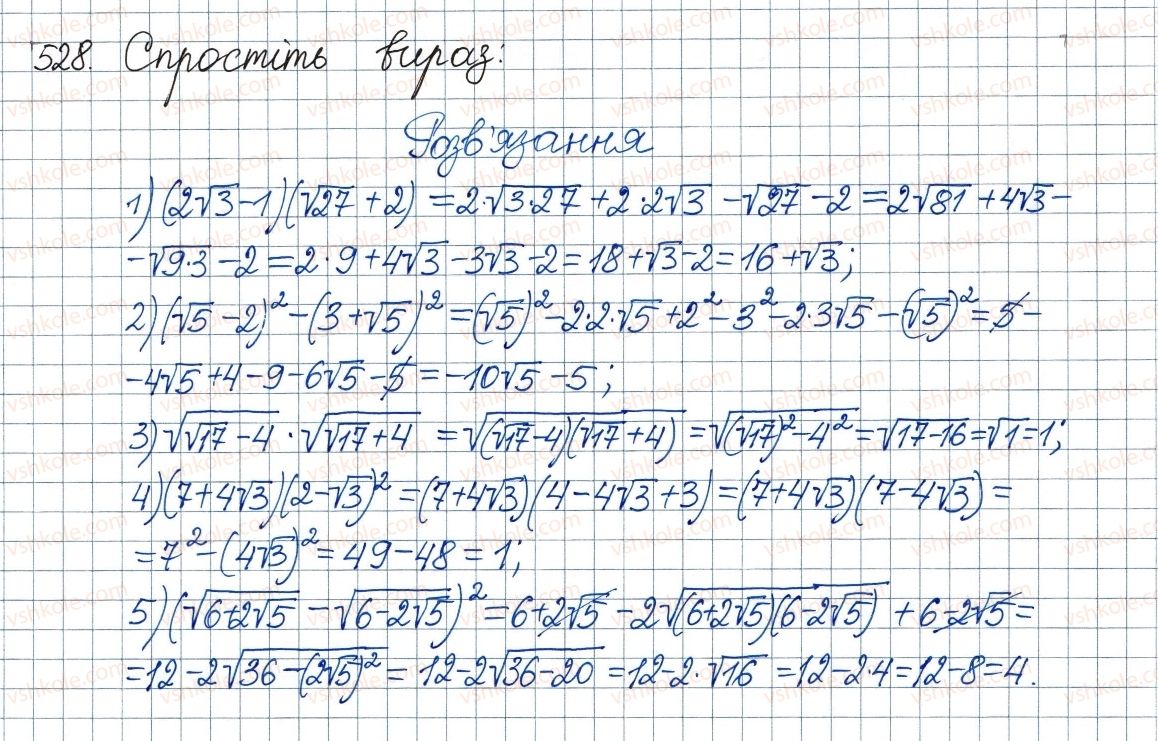 528. Спростіть вираз:
Розв'язання
1) (2√3-1)(√27+2) = 2·√3·27 + 2·2√3 - √27 - 2 = 2√81 + 4√3 -
- √9·3 - 2 = 2·9 + 4√3 - 3√3 - 2 = 18 + √3 - 2 = 16 + √3;
2) (√5 - 2)² - (3 + √5)² = (√5)² - 2·2·√5 + 2² - 3² - 2·3√5 - (√5)² = 5 -
- 4√5 + 4 - 9 - 6√5 - 5 = -10√5 - 5;
3) √(√17 - 4) · √(√17 + 4) = √((√17 - 4)(√17 + 4)) = √((√17)² - 4²) = √17-16 = √1 = 1;
4) (7 + 4√3)(2 - √3)² = (7 + 4√3)(4 - 4√3 + 3) = (7 + 4√3)(7 - 4√3) =
= 7² - (4√3)² = 49 - 48 = 1;
5) (√(6+2√5) - √(6-2√5))² = 6 + 2√5 - 2√((6+2√5)(6-2√5)) + 6 - 2√5 =
= 12 - 2√(36 - (2√5)²) = 12 - 2√36-20 = 12 - 2·√16 = 12 - 2·4 = 12 - 8 = 4.
vshkole.com